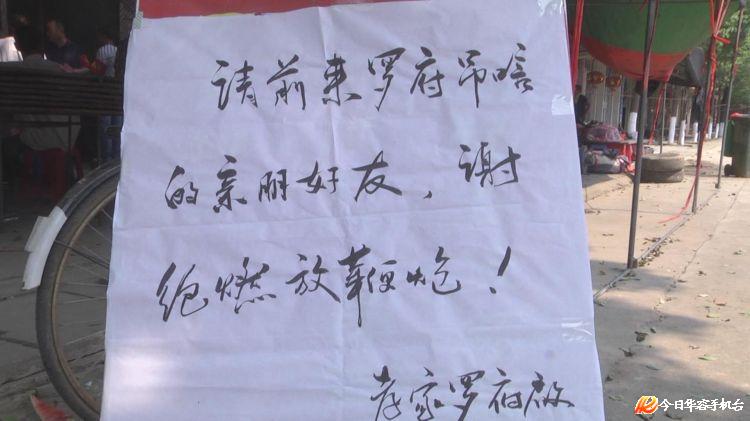 请前来罗府吊唁
的亲朋好友，谢
绝燃放鞭炮！
孝家罗府启
今日华容手机台